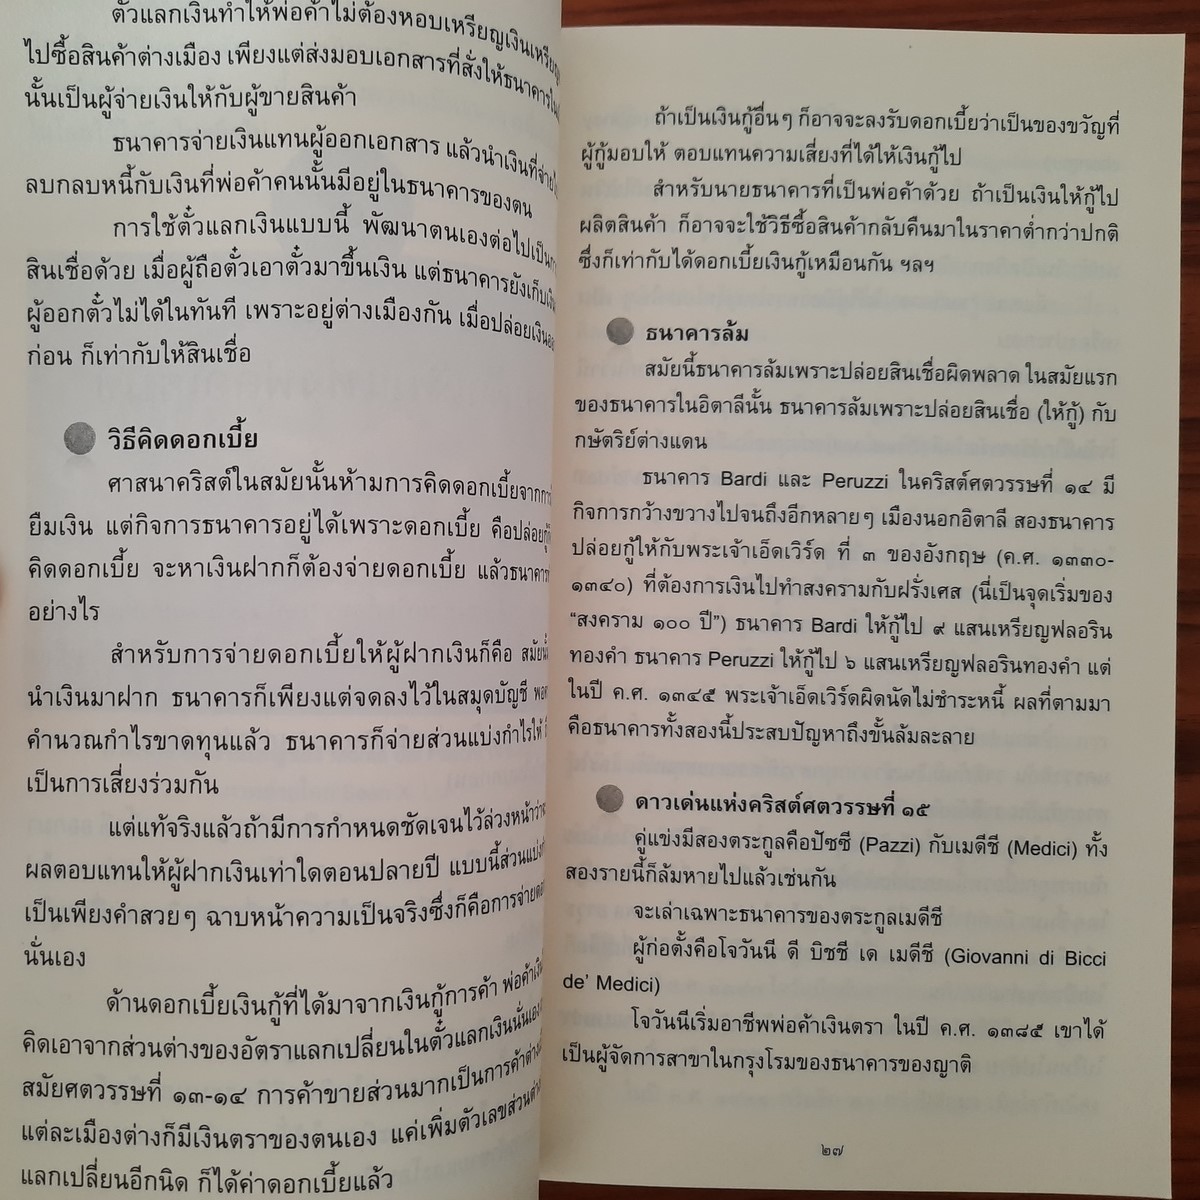 ตัวแลกเงินทำให้พ่อค้าไม่ต้องหอบเหรียญเงิน
ไปซื้อสินค้าต่างเมือง เพียงแต่ส่งมอบเอกสารที่สั่งให้ธนาคาร
นั้นเป็นผู้จ่ายเงินให้กับผู้ขายสินค้า
ธนาคารจ่ายเงินแทนผู้ออกเอกสาร แล้วนำเงินที่
ลบกลบหนี้กับเงินที่พ่อค้าคนนั้นมีอยู่ในธนาคารของตน
การใช้ตั๋วแลกเงินแบบนี้ พัฒนาตนเองต่อไปเป็น
สินเชื่อด้วย เมื่อผู้ถือตั๋วเอาตั๋วมาขึ้นเงิน แต่ธนาคารยังเก็บ
ผู้ออกตั๋วไม่ได้ในทันที เพราะอยู่ต่างเมืองกัน เมื่อปล่อยเงิน
ก่อน ก็เท่ากับให้สินเชื่อ
วิธีคิดดอกเบี้ย
ศาสนาคริสต์ในสมัยนั้นห้ามการคิดดอกเบี้ยจาก
ยืมเงิน แต่กิจการธนาคารอยู่ได้เพราะดอกเบี้ย คือปล่อย
คิดดอกเบี้ย จะหาเงินฝากก็ต้องจ่ายดอกเบี้ย แล้วธนาคาร
อย่างไร
สำหรับการจ่ายดอกเบี้ยให้ผู้ฝากเงินก็คือ
นำเงินมาฝาก ธนาคารก็เพียงแต่จดลงไว้ในสมุดบัญชี
คำนวณกำไรขาดทุนแล้ว ธนาคารก็จ่ายส่วนแบ่งกำไรให้
เป็นการเสี่ยงร่วมกัน
แต่แท้จริงแล้วถ้ามีการกำหนดชัดเจนไว้ล่วงหน้า
ผลตอบแทนให้ผู้ฝากเงินเท่าใดตอนปลายปี แบบนี้ส่วนแบ่ง
เป็นเพียงคำสวยๆ ฉาบหน้าความเป็นจริงซึ่งก็คือการจ่าย
นั่นเอง
ด้านดอกเบี้ยเงินกู้ที่ได้มาจากเงินกู้การค้า พ่อค้า
คิดเอาจากส่วนต่างของอัตราแลกเปลี่ยนในตั๋วแลกเงินนั่นเอง
สมัยศตวรรษที่ ๑๓-๑๔ การค้าขายส่วนมากเป็นการค้า
แต่ละเมืองต่างก็มีเงินตราของตนเอง แค่เพิ่มตัวเลขส่วนต่าง
แลกเปลี่ยนอีกนิด ก็ได้ค่าดอกเบี้ยแล้ว
ถ้าเป็นเงินกู้อื่นๆ ก็อาจจะลงรับดอกเบี้ยว่าเป็นของขวัญที่
ผู้กู้มอบให้ ตอบแทนความเสี่ยงที่ได้ให้เงินกู้ไป
สำหรับนายธนาคารที่เป็นพ่อค้าด้วย ถ้าเป็นเงินให้กู้ไป
ผลิตสินค้า ก็อาจจะใช้วิธีซื้อสินค้ากลับคืนมาในราคาต่ำกว่าปกติ
ซึ่งก็เท่ากับได้ดอกเบี้ยเงินกู้เหมือนกัน ฯลฯ
ธนาคารล้ม
สมัยนี้ธนาคารล้มเพราะปล่อยสินเชื่อผิดพลาด ในสมัยแรก
ของธนาคารในอิตาลีนั้น ธนาคารล้มเพราะปล่อยสินเชื่อ (ให้กู้) กับ
กษัตริย์ต่างแดน
ธนาคาร Bardi และ Peruzzi ในคริสต์ศตวรรษที่ ๑๔ มี
กิจการกว้างขวางไปจนถึงอีกหลายๆ เมืองนอกอิตาลี สองธนาคาร
ปล่อยกู้ให้กับพระเจ้าเอ็ดเวิร์ด ที่ ๓ ของอังกฤษ (ค.ศ. ๑๓๓๐-
๑๓๔๐) ที่ต้องการเงินไปทำสงครามกับฝรั่งเศส (นี่เป็นจุดเริ่มของ
“สงคราม ๑๐๐ ปี”) ธนาคาร Bardi ให้กู้ไป ๙ แสนเหรียญฟลอริน
ทองคำ ธนาคาร Peruzzi ให้กู้ไป ๖ แสนเหรียญฟลอรินทองคำ แต่
ในปี ค.ศ. ๑๓๔๕ พระเจ้าเอ็ดเวิร์ดผิดนัดไม่ชำระหนี้ ผลที่ตามมา
คือธนาคารทั้งสองนี้ประสบปัญหาถึงขั้นล้มละลาย
ดาวเด่นแห่งคริสต์ศตวรรษที่ ๑๕
คู่แข่งมีสองตระกูลคือปัซซี (Pazzi) กับเมดีชี (Medici) ทั้ง
สองรายนี้ก็ล้มหายไปแล้วเช่นกัน
จะเล่าเฉพาะธนาคารของตระกูลเมดีชี
ผู้ก่อตั้งคือโจวันนี ดี บิชชี เด เมดีชี (Giovanni di Bicci
de’ Medici)
โจวันนีเริ่มอาชีพพ่อค้าเงินตรา ในปี ค.ศ. ๑๓๘๕ เขาได้
เป็นผู้จัดการสาขาในกรุงโรมของธนาคารของญาติ
๒๗